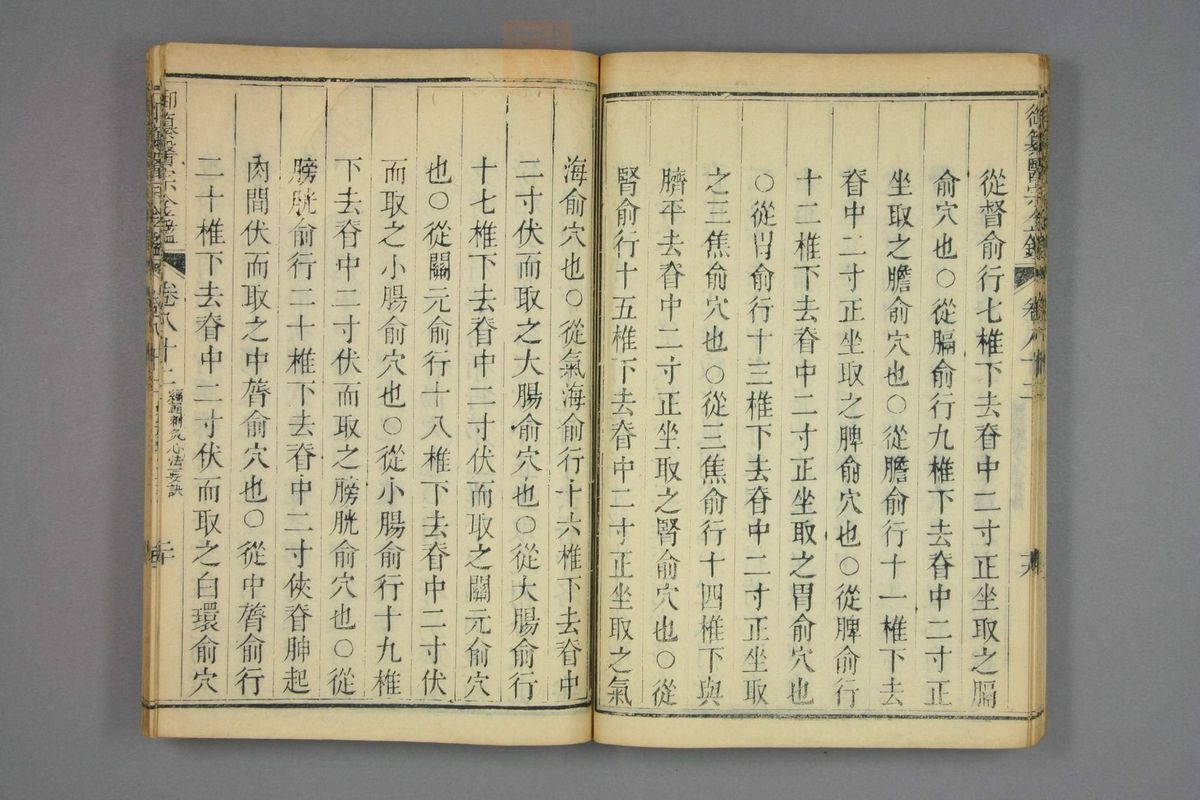 御纂醫宗金鑑 卷八十二
從督俞行七椎下去脊中二寸正坐取之膈
俞穴也○從膈俞行九椎下去脊中二寸正
坐取之膽俞穴也○從膽俞行十一椎下去
脊中二寸正坐取之脾俞穴也○從脾俞行
十二椎下去脊中二寸正坐取之胃俞穴也
○從胃俞行十三椎下去脊中二寸正坐取
之三焦俞穴也○從三焦俞行十四椎下與
臍平去脊中二寸正坐取之腎俞穴也○從
腎俞行十五椎下去脊中二寸正坐取之氣
海俞穴也○從氣海俞行十六椎下去脊中
二寸伏而取之大腸俞穴也○從大腸俞行
十七椎下去脊中二寸伏而取之關元俞穴
也○從關元俞行十八椎下去脊中二寸伏
而取之小腸俞穴也○從小腸俞行十九椎
下去脊中二寸伏而取之膀胱俞穴也○從
膀胱俞行二十椎下去脊中二寸俠脊胂起
肉間伏而取之中膂俞穴也○從中膂俞行
二十椎下去脊中二寸伏而取之白環俞穴
御纂醫宗金鑑 卷八十二 編輯刺灸心法要訣 二十